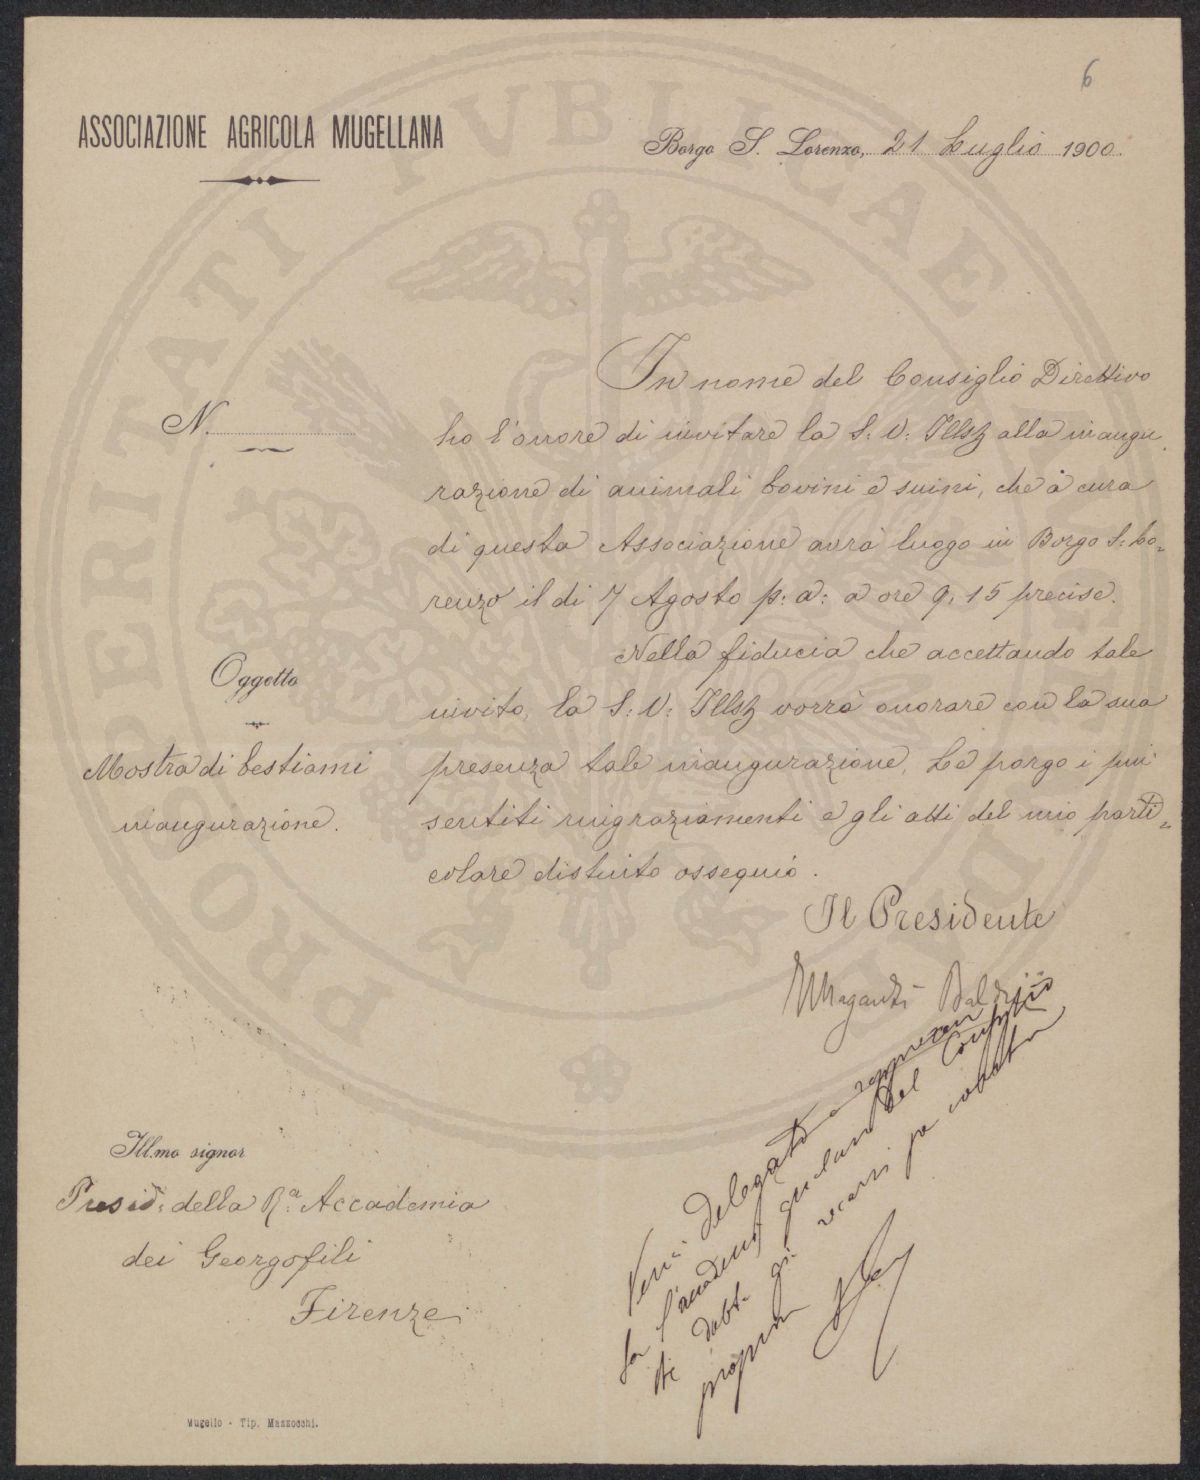 6
ASSOCIAZIONE AGRICOLA MUGELLANA
Borgo S. Lorenzo, 21 Luglio 1900.
N.
In nome del Consiglio Direttivo
ho l'onore di invitare la S: V: Illzz alla inaugu=
razione di animali bovini e suini, che à cura
di questa Associazione avrà luogo in Borgo S: Lo=
renzo il di 7 Agosto p: a: a ore 9,15 precise.
Nella fiducia che accettando tale
invito, la S: V: Ill vorrà onorare con la sua
presenza tale inaugurazione, Le porgo i più
sentiti ringraziamenti e gli atti del mio parti=
colare distinto ossequio.
Oggetto
Mostra di bestiami
inaugurazione.
Il Presidente
Ill.mo signor
Presid: della R.a Accademia
dei Georgofili
Firenze
Venne delegato a
l' del
di recarsi
Mugello - Tip. Mazzocchi.
PROSPERITATI PVBLICAE